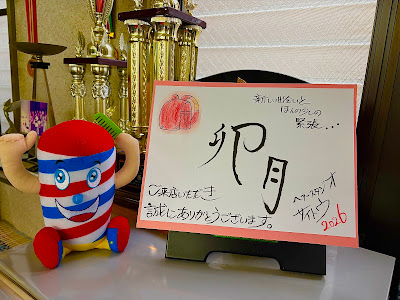 新しい出会いと
ほんの少しの
緊張...
卯月
ご来店いただき
誠にありがとうございます。
ヘアースタジオ
サイトウ
2026